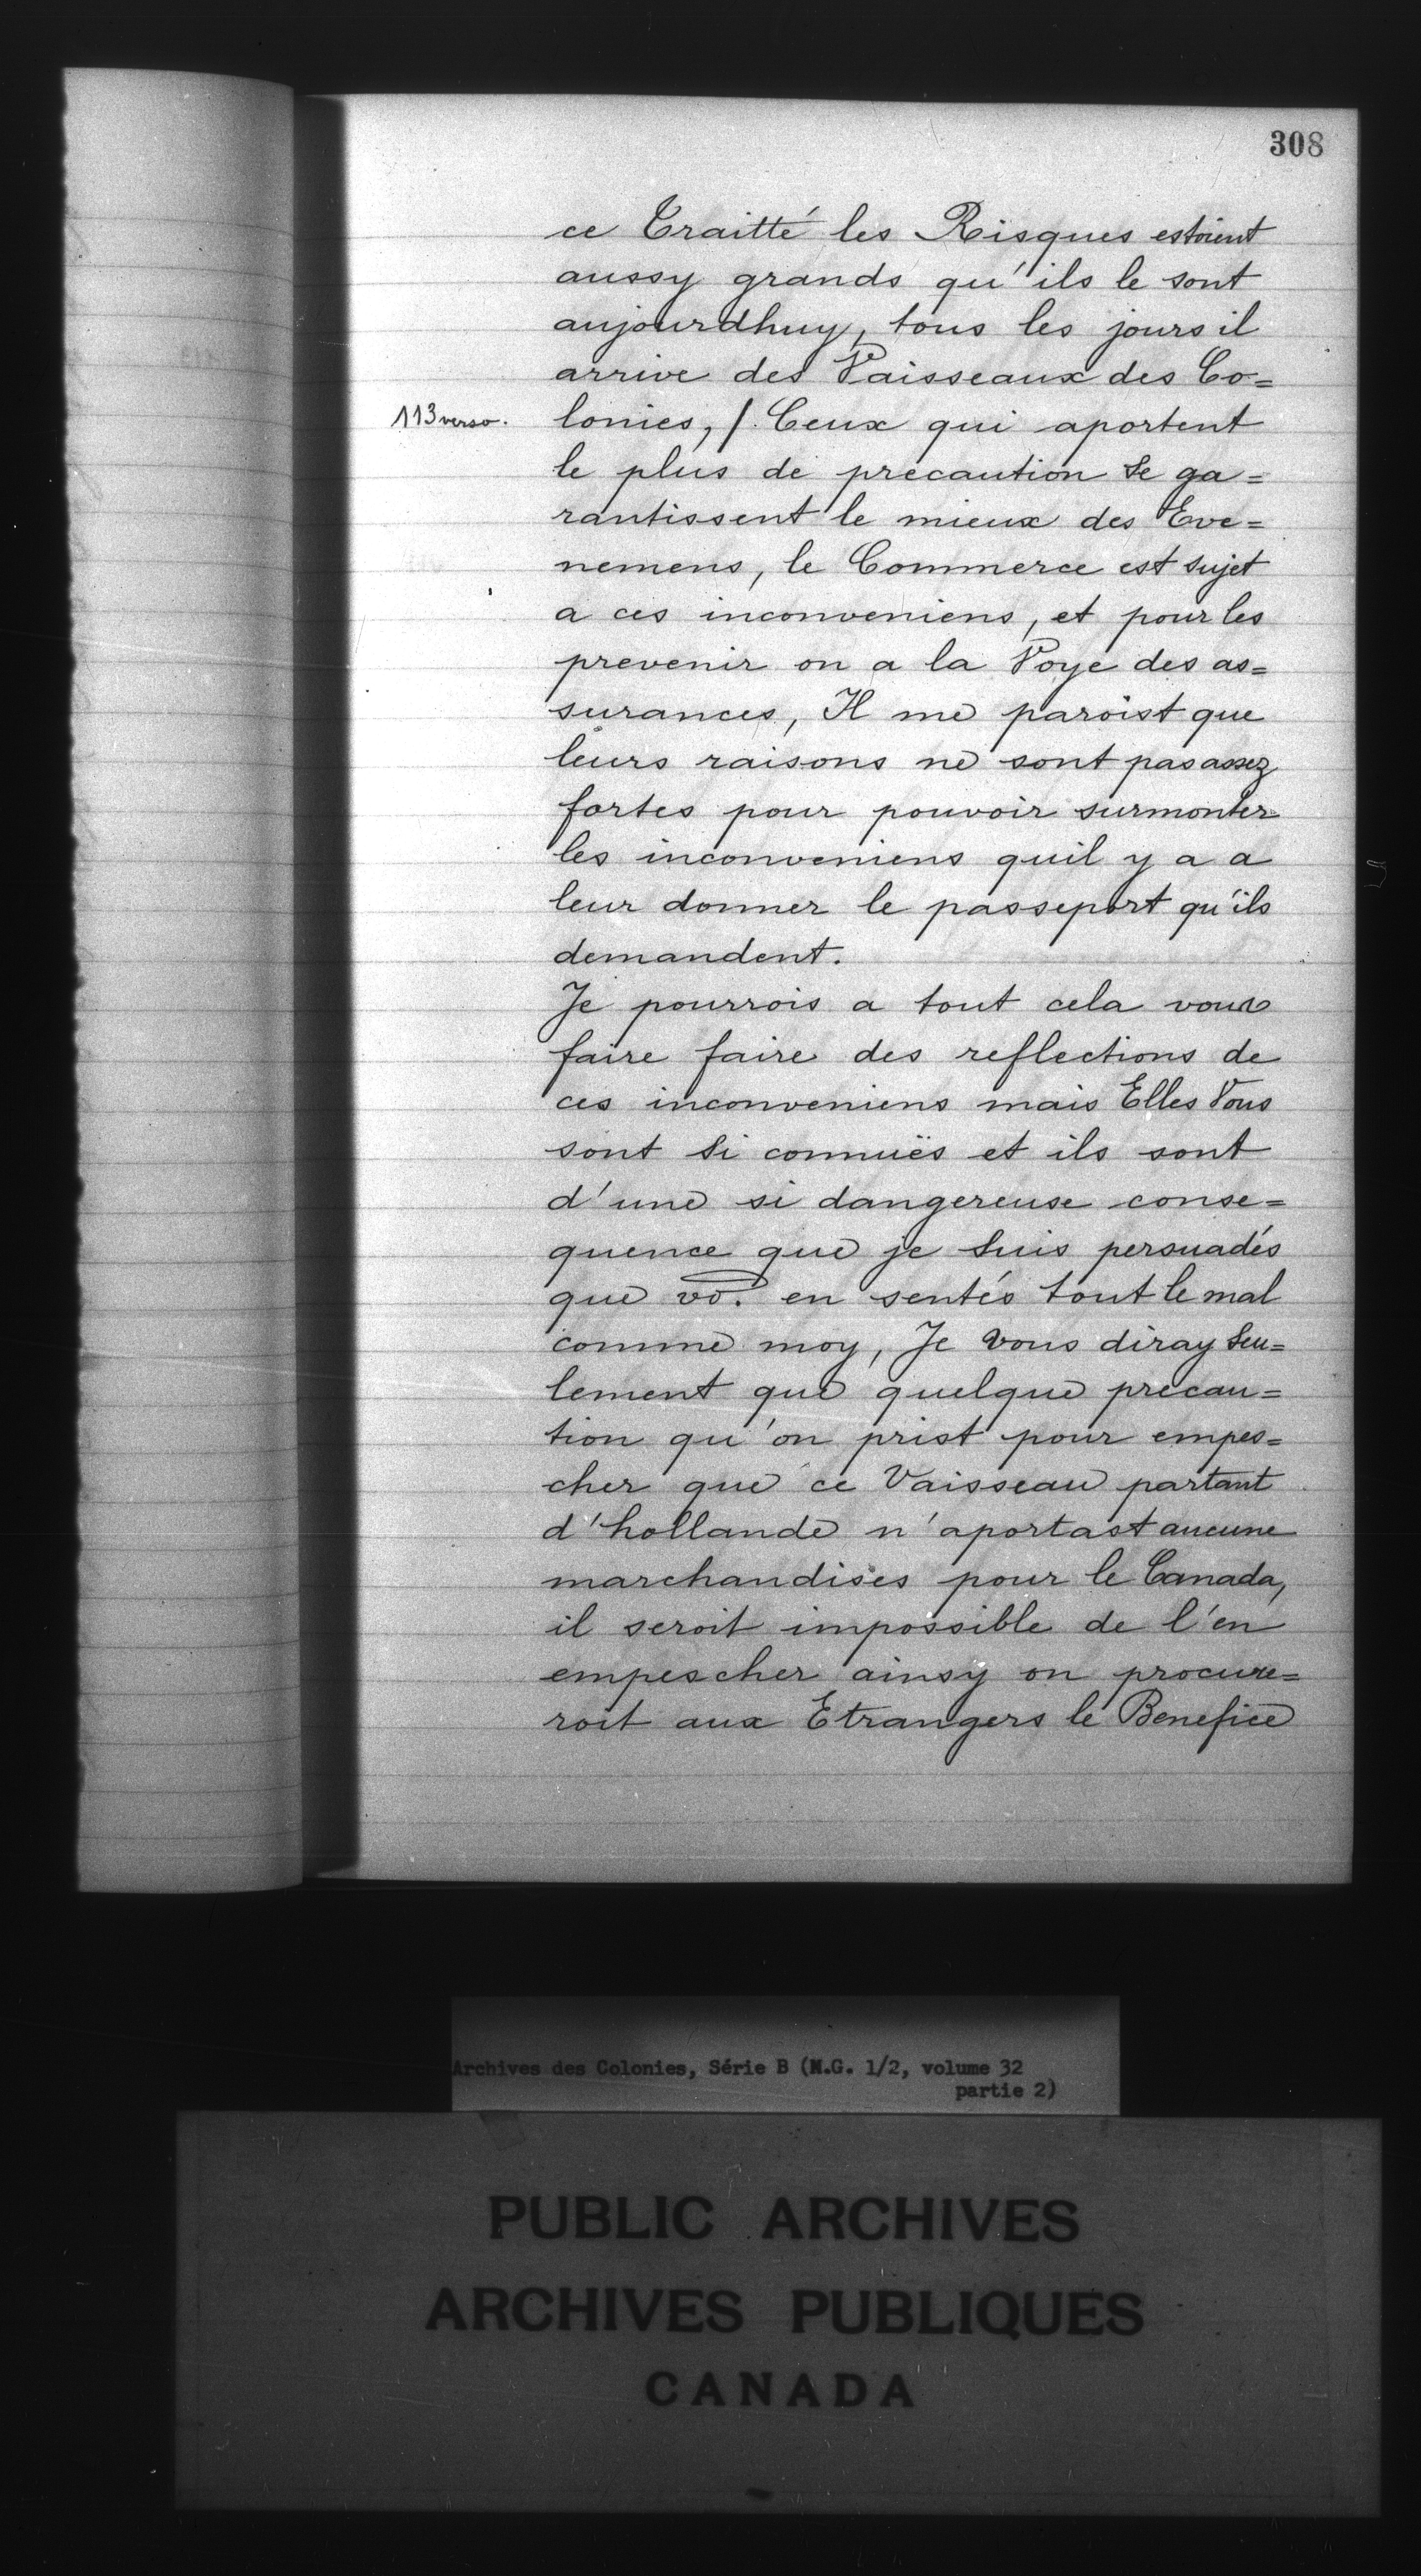 308
ce Traitté les Risques estoient
aussy grands qu'ils le sont
aujourdhuy, tous les jours il
arrive des Vaisseaux des Co=
113 verso. lonies, /. Ceux qui aportent
le plus de precaution se ga=
rantissent le mieux des Eve=
nemens, le Commerce est sujet
a ces inconveniens, et pour les
prevenir on a la Voye des as=
surances, Il me paroist que
leurs raisons ne sont pas assez
fortes pour pouvoir surmonter
les inconveniens quil y a a
leur donner le passeport qu'ils
demandent.
Je pourrois a tout cela vous
faire faire des reflections de
ces inconveniens mais Elles Vous
sont si connuës et ils sont
d'une si dangereuse conse=
quence que je suis persuadés
que vo. en sentés tout le mal
comme moy, Je vous diray seu=
lement que quelque precau=
tion qu'on prist pour empes=
cher que ce Vaisseau partant
d'hollande n'aportast aucune
marchandises pour le Canada,
il seroit impossible de l'en
empescher ainsy on procure=
roit aux Etrangers le Benefice
Archives des Colonies, Série B (M.G. 1/2, volume 32
partie 2)
PUBLIC ARCHIVES
ARCHIVES PUBLIQUES
CANADA